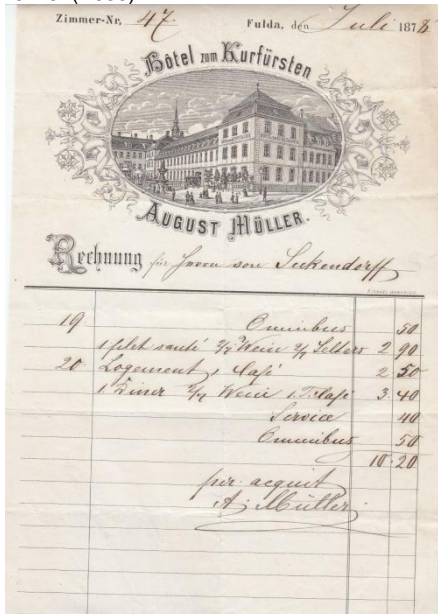 Zimmer-Nr. 47. Fulda, den Juli 1878
Hôtel zum Kurfürsten
AUGUST MÜLLER.
Rechnung für Herrn von Seckendorff
19 Omnibus 50
1 filet sauté Wein Selters 2 90
20 Logement, Café 2 50
1 Diner Wein 1 T. Café 3.40
Service 40
Omnibus 50
10.20
per acquit
A. Müller